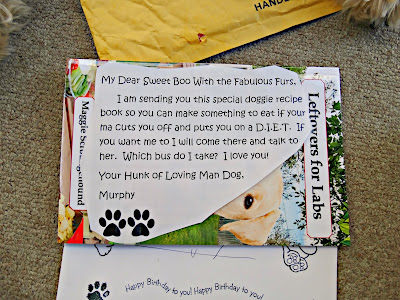 HANDL
My Dear Sweet Boo With the Fabulous Furs,
I am sending you this special doggie recipe
book so you can make something to eat if your
ma cuts you off and puts you on a D.I.E.T. If
you want me to I will come there and talk to
her. Which bus do I take? I love you!
Your Hunk of Loving Man Dog,
Murphy
Leftovers for Labs
Maggie
Happy Birthday to you! Happy Birthday to you!